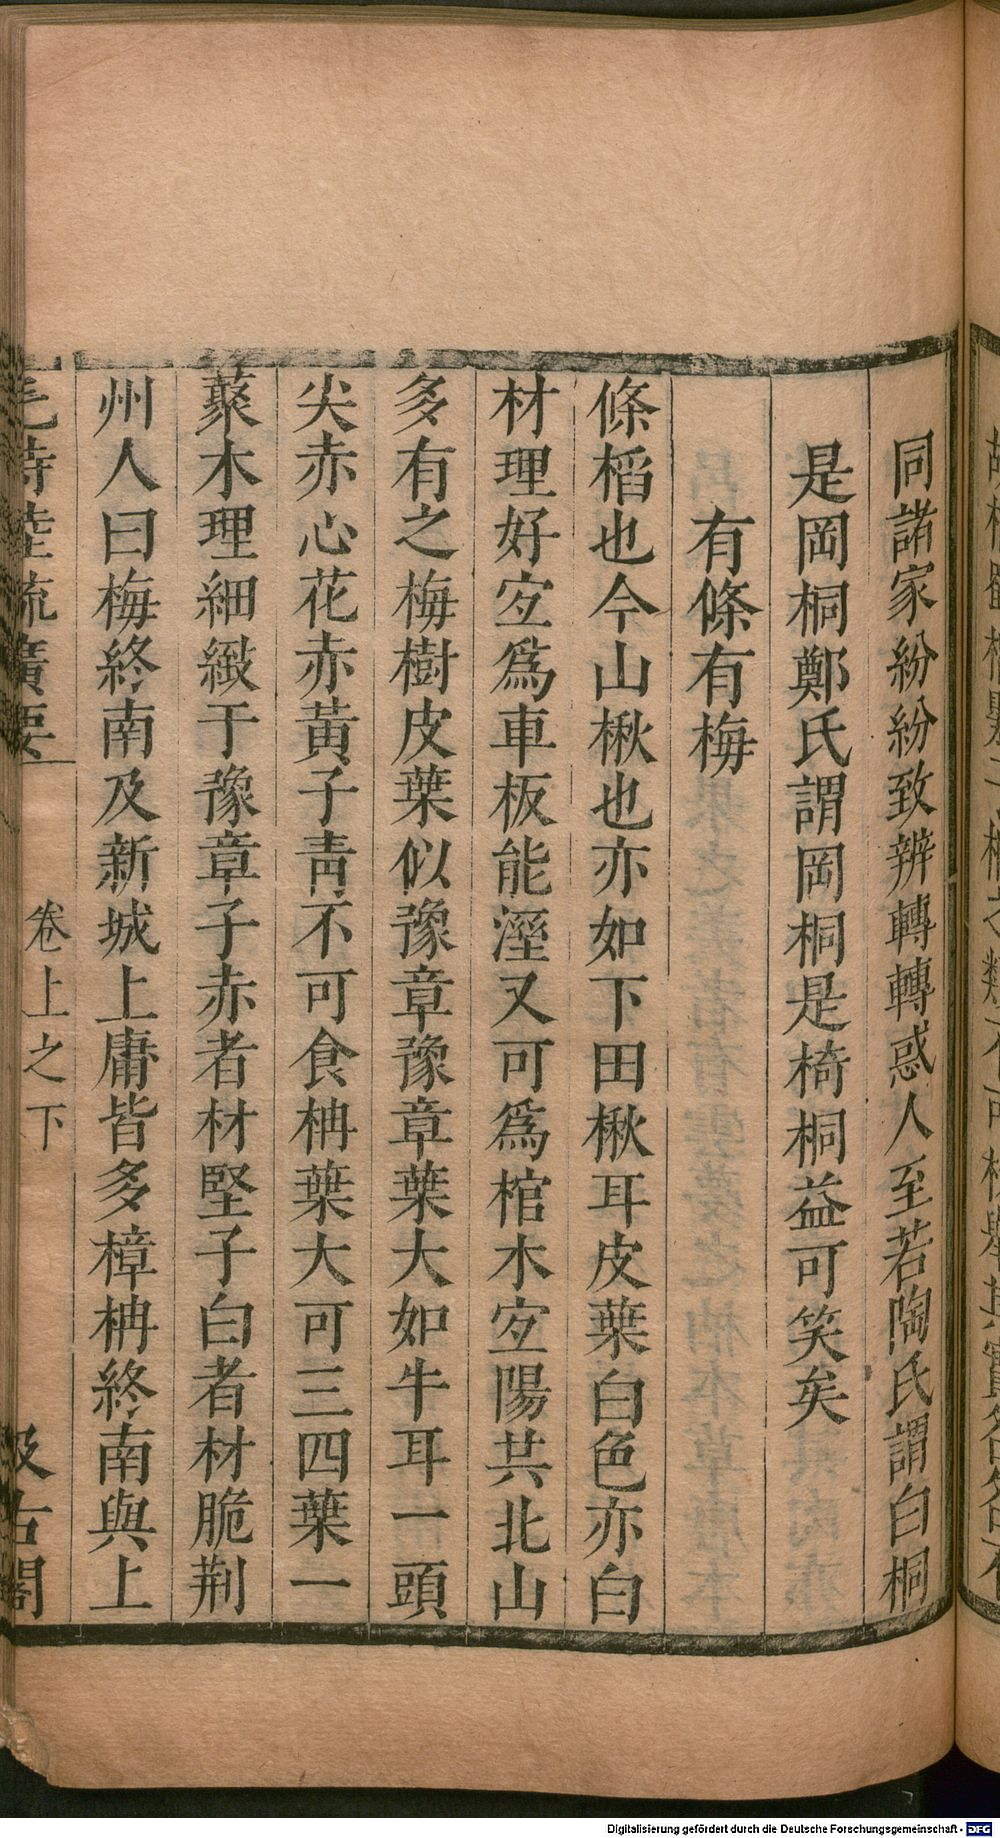 同諸家紛紛致辨轉轉惑人至若陶氏謂白桐
是岡桐鄭氏謂岡桐是椅桐益可笑矣
有條有梅
條稻也今山楸也亦如下田楸耳皮葉白色亦白
材理好宐爲車板能溼又可爲棺木宐陽共北山
多有之梅樹皮葉似豫章豫章葉大如牛耳一頭
尖赤心花赤黃子靑不可食柟葉大可三四葉一
藂木理細緻于豫章子赤者材堅子白者材脆荆
州人曰梅終南及新城上庸皆多樟柟終南與上
毛詩陸疏廣要
卷上之下
汲古閣
Digitalisierung gefördert durch die Deutsche Forschungsgemeinschaft - DFG